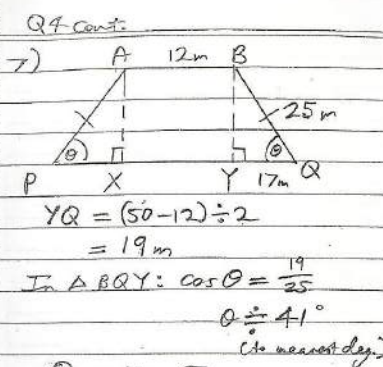 Q4 cont.
7) A 12m B
25m
θ θ
P X Y 17m Q
YQ = (50-12)÷2
= 19m
In Δ BQY: cosθ = 19/25
θ ≑ 41°
(to nearest deg.)